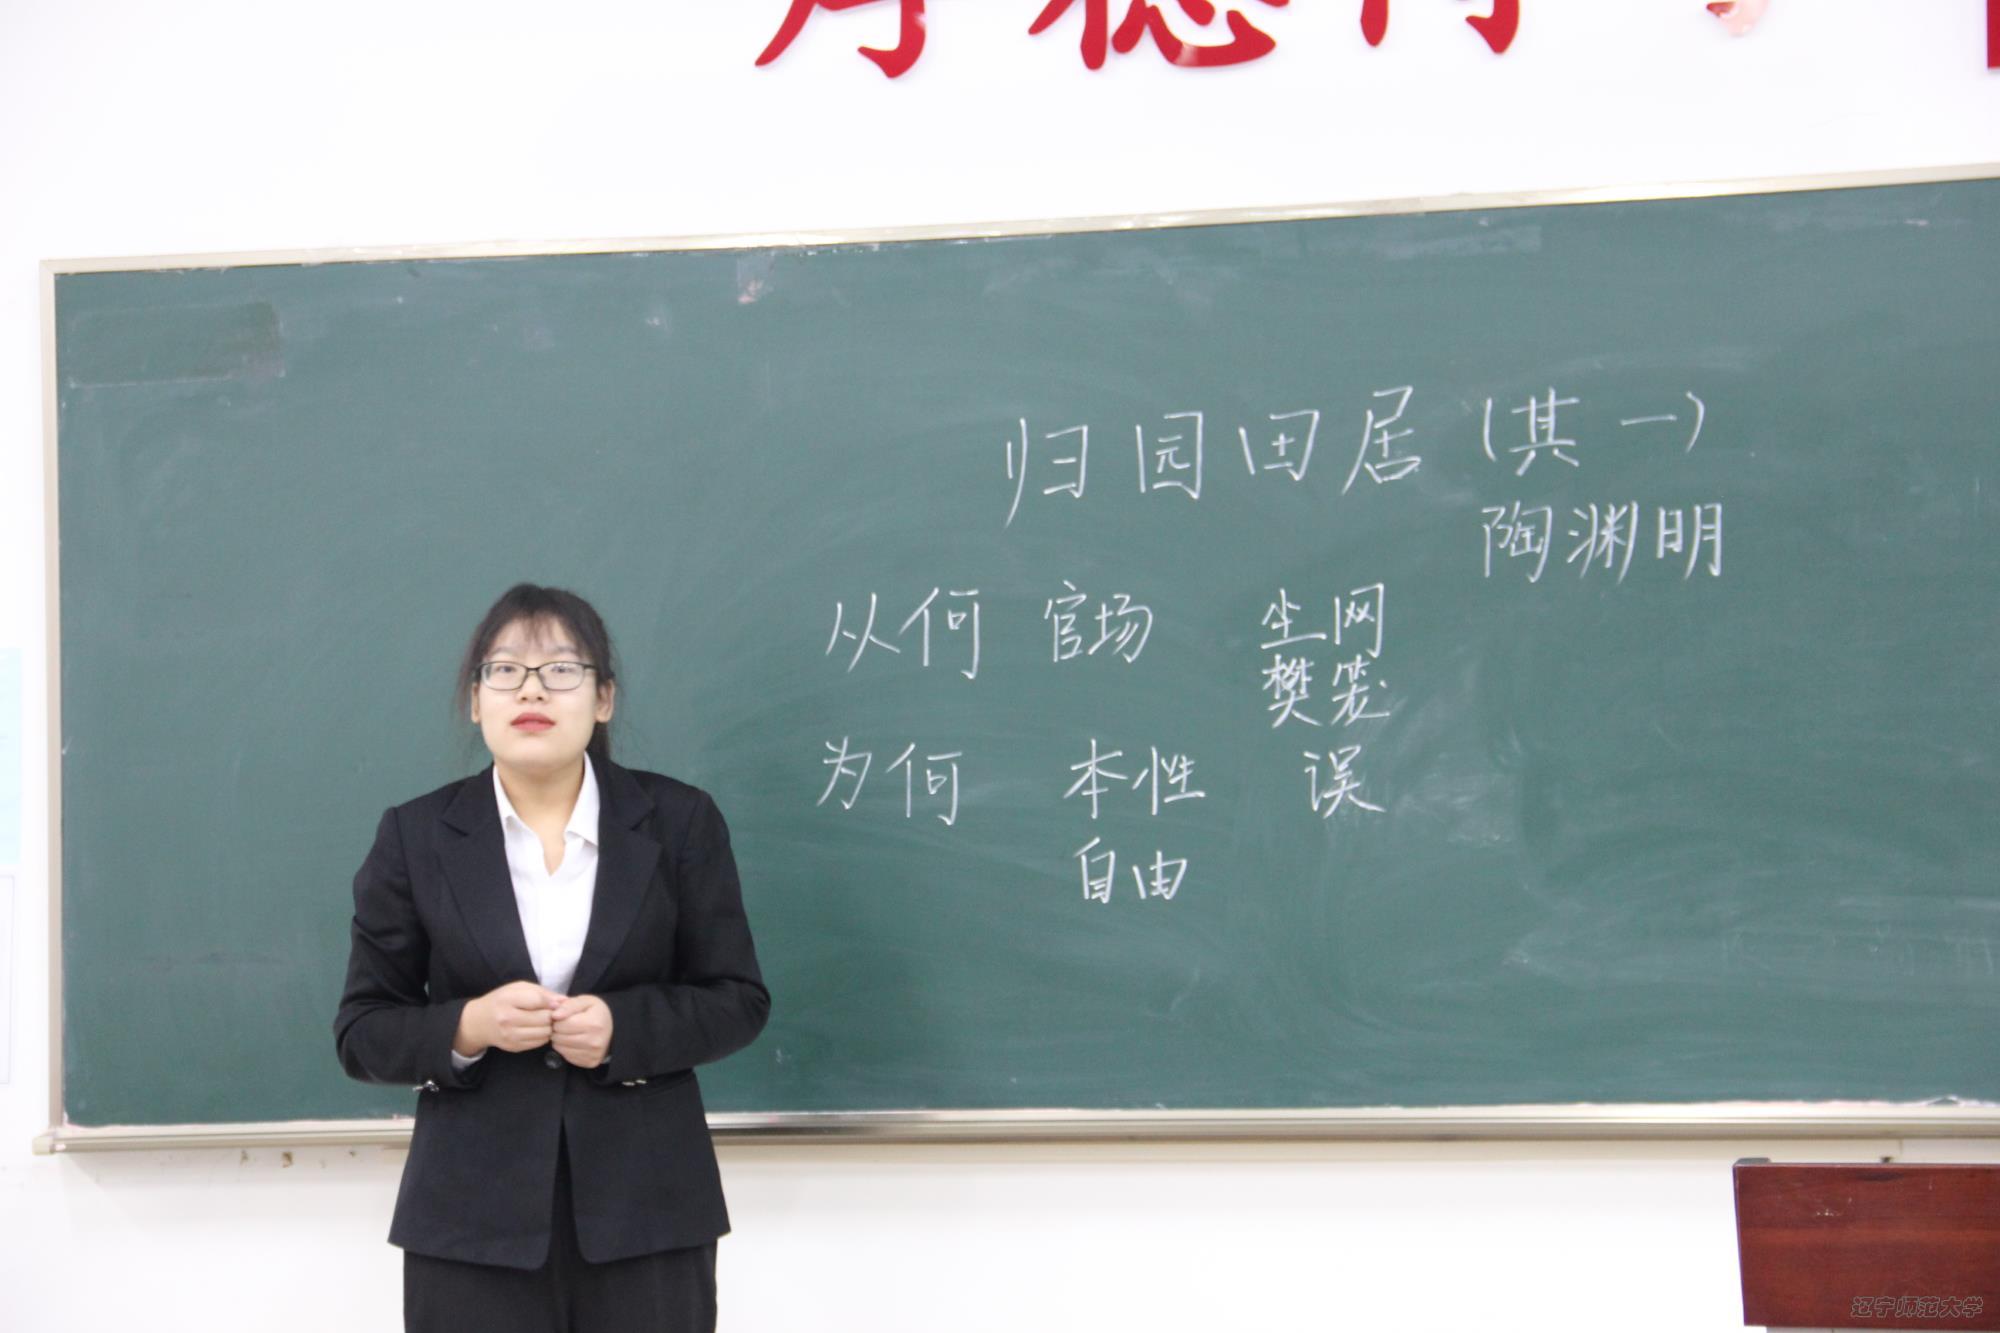 归园田居(其一)
陶渊明
从何 官场 尘网
樊笼
为何 本性 误
自由
辽宁师范大学